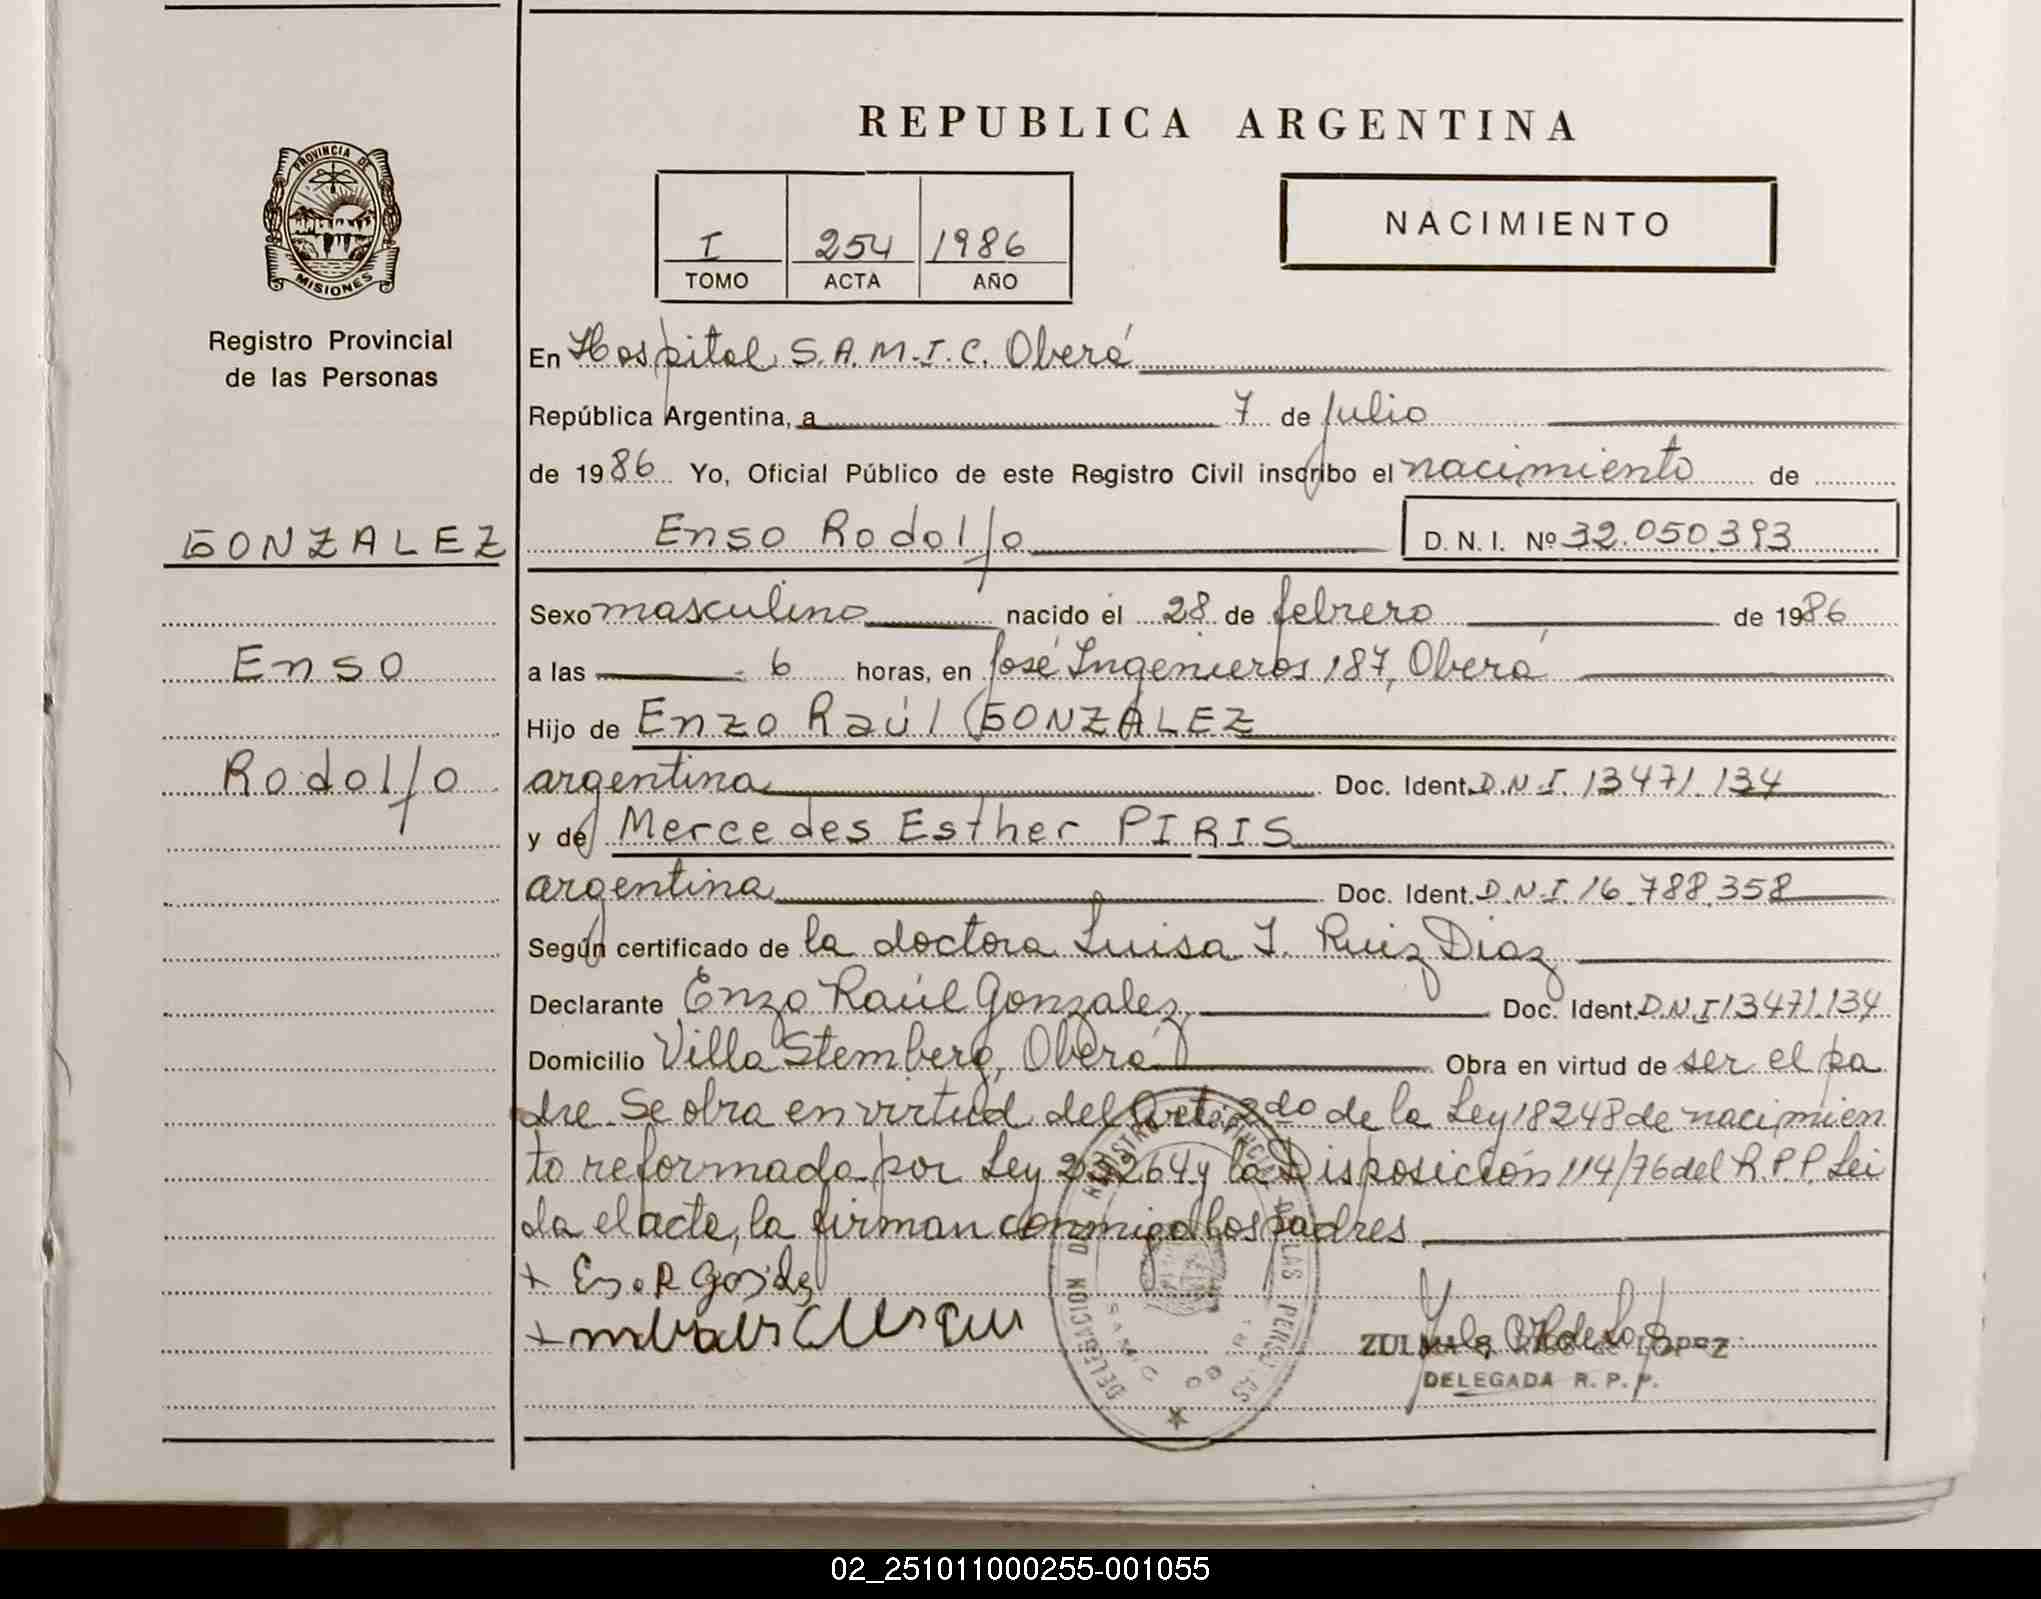 REPUBLICA ARGENTINA
PROVINCIA DE
MISIONES
Registro Provincial
de las Personas
I 254 1986
TOMO ACTA AÑO
NACIMIENTO
En Hospital S.A.M.I.C. Oberá
República Argentina, a 7 de julio
de 1986 Yo, Oficial Público de este Registro Civil inscribo el nacimiento de
GONZALEZ
Enso Rodolfo D. N. I. Nº 32.050.393
Sexo masculino nacido el 28 de febrero de 1986
Enso
a las 6 horas, en José Ingenieros 187, Oberá
Hijo de Enzo Raúl GONZALEZ
Rodolfo
argentina Doc. Ident. D.N.I. 13471.134
y de Mercedes Esther PIRIS
argentina Doc. Ident. D.N.I. 16.788.358
Según certificado de la doctora Luisa I. Ruiz Diaz
Declarante Enzo Raúl Gonzalez, Doc. Ident. D.N.I 13471.134
Domicilio Villa Stemberg, Oberá Obra en virtud de ser el pa
dre. Se obra en virtud del Art: 2do de la Ley 18248 de nacimien
to reformada por Ley 23264 y la Disposición 114/76 del R.P.P. Lei
da el acta, la firman conmigo los padres
DELEGACION DEL REGISTRO PROVINCIAL DE LAS PERSONAS
LOPEZ
DELEGADA R. P. P.
02_251011000255-001055